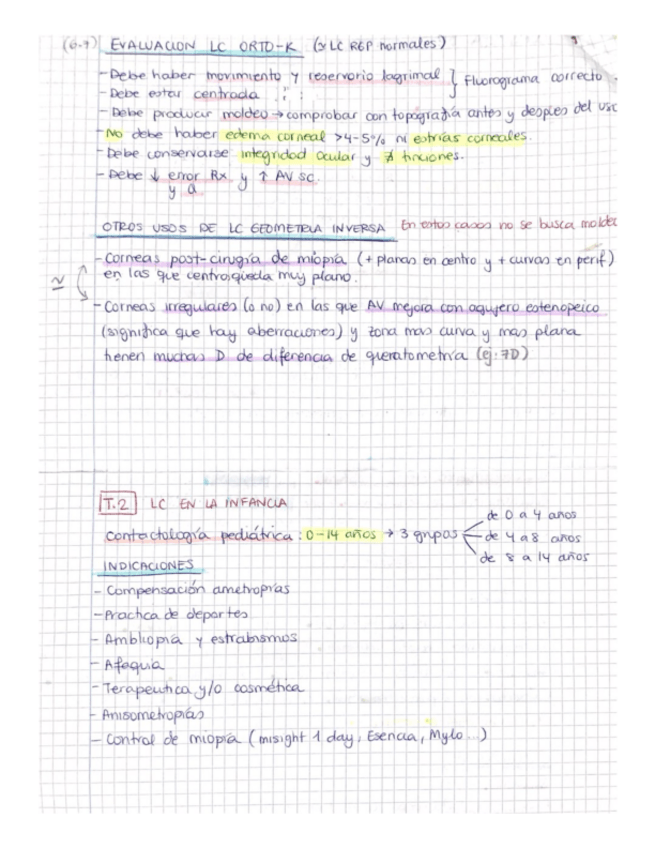 (6-9) EVALUACION LC ORTO-K (≃ LC RGP normales)
- Debe haber movimiento y reservorio lagrimal } Fluorograma correcto.
- Debe estar centrada " :
- Debe producir moldeo → comprobar con topografía antes y despues del uso
- No debe haber edema corneal >4-5% ni estrías corneales.
- Debe conservarse integridad ocular y ∄ tinciones.
- Debe ↓ error Rx y ↑ AV sc.
y a
OTROS USOS DE LC GEOMETRIA INVERSA En estos casos no se busca moldeo
- Corneas post-cirugía de miopía (+ planas en centro y + curvas en perif)
en las que centro queda muy plano.
≃
- Corneas irregulares (o no) en las que AV mejora con agujero estenopeico
(significa que hay aberraciones) y zona mas curva y mas plana
tienen muchas D de diferencia de queratometría (ej: 7D)
T.2 LC EN LA INFANCIA
de 0 a 4 años
Contactología pediátrica: 0-14 años → 3 grupos de 4 a 8 años
de 8 a 14 años
INDICACIONES
- Compensación ametropías
- Practica de deportes
- Ambliopia y estrabismos
- Afaquia
- Terapeutica y/o cosmética
- Anisometropías
- Control de miopía (misight 1 day, Esencia, Mylo...)